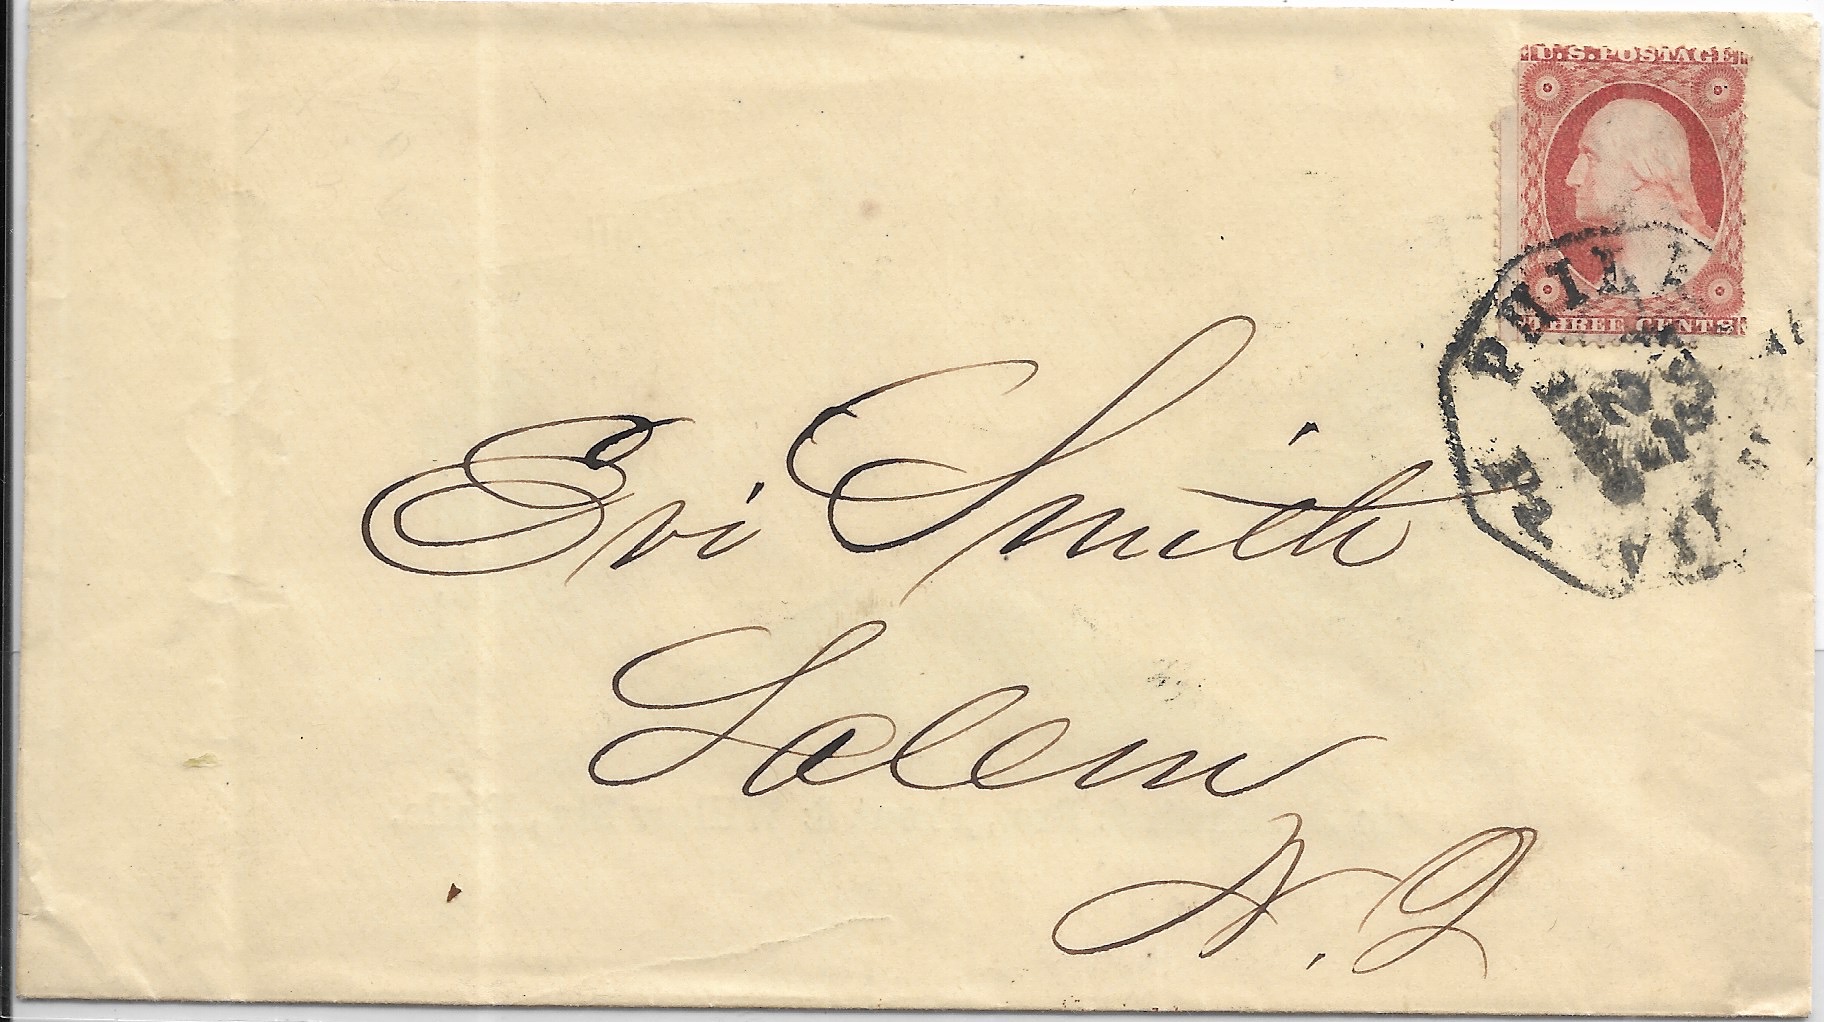 U.S. POSTAGE
THREE CENTS
PHILA
Evi Smith
Salem
N. J.